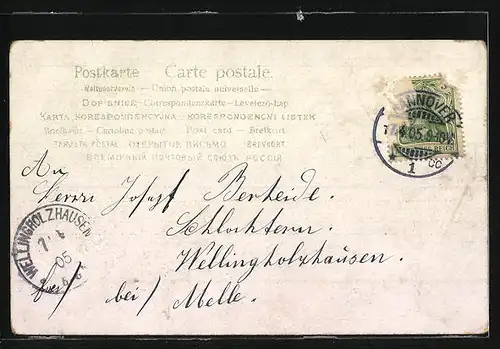 Postkarte Carte postale.
Weltpostverein — Union postale universelle —
DOPISNICE — Correspondenzkarte — Levelező-Lap
KARTA KORESPONDENCYJNA — KORESPONDENČNI LISTEK
Briefkaart — Cartolina postale — Post card — Brefkort
TARJETA POSTAL ОТКРЫТОЕ ПИСЬМО BREVKORT
ВСЕМІРНЫЙ ПОЧТОВЫЙ СОЮЗЪ РОССІЯ
HANNOVER
05
1
cc
REICH
An
Herrn Josef Berheide.
Schlochtern.
Wellingholzhausen.
bei Melle.
WELLINGHOLZHAUSEN
7 4
05